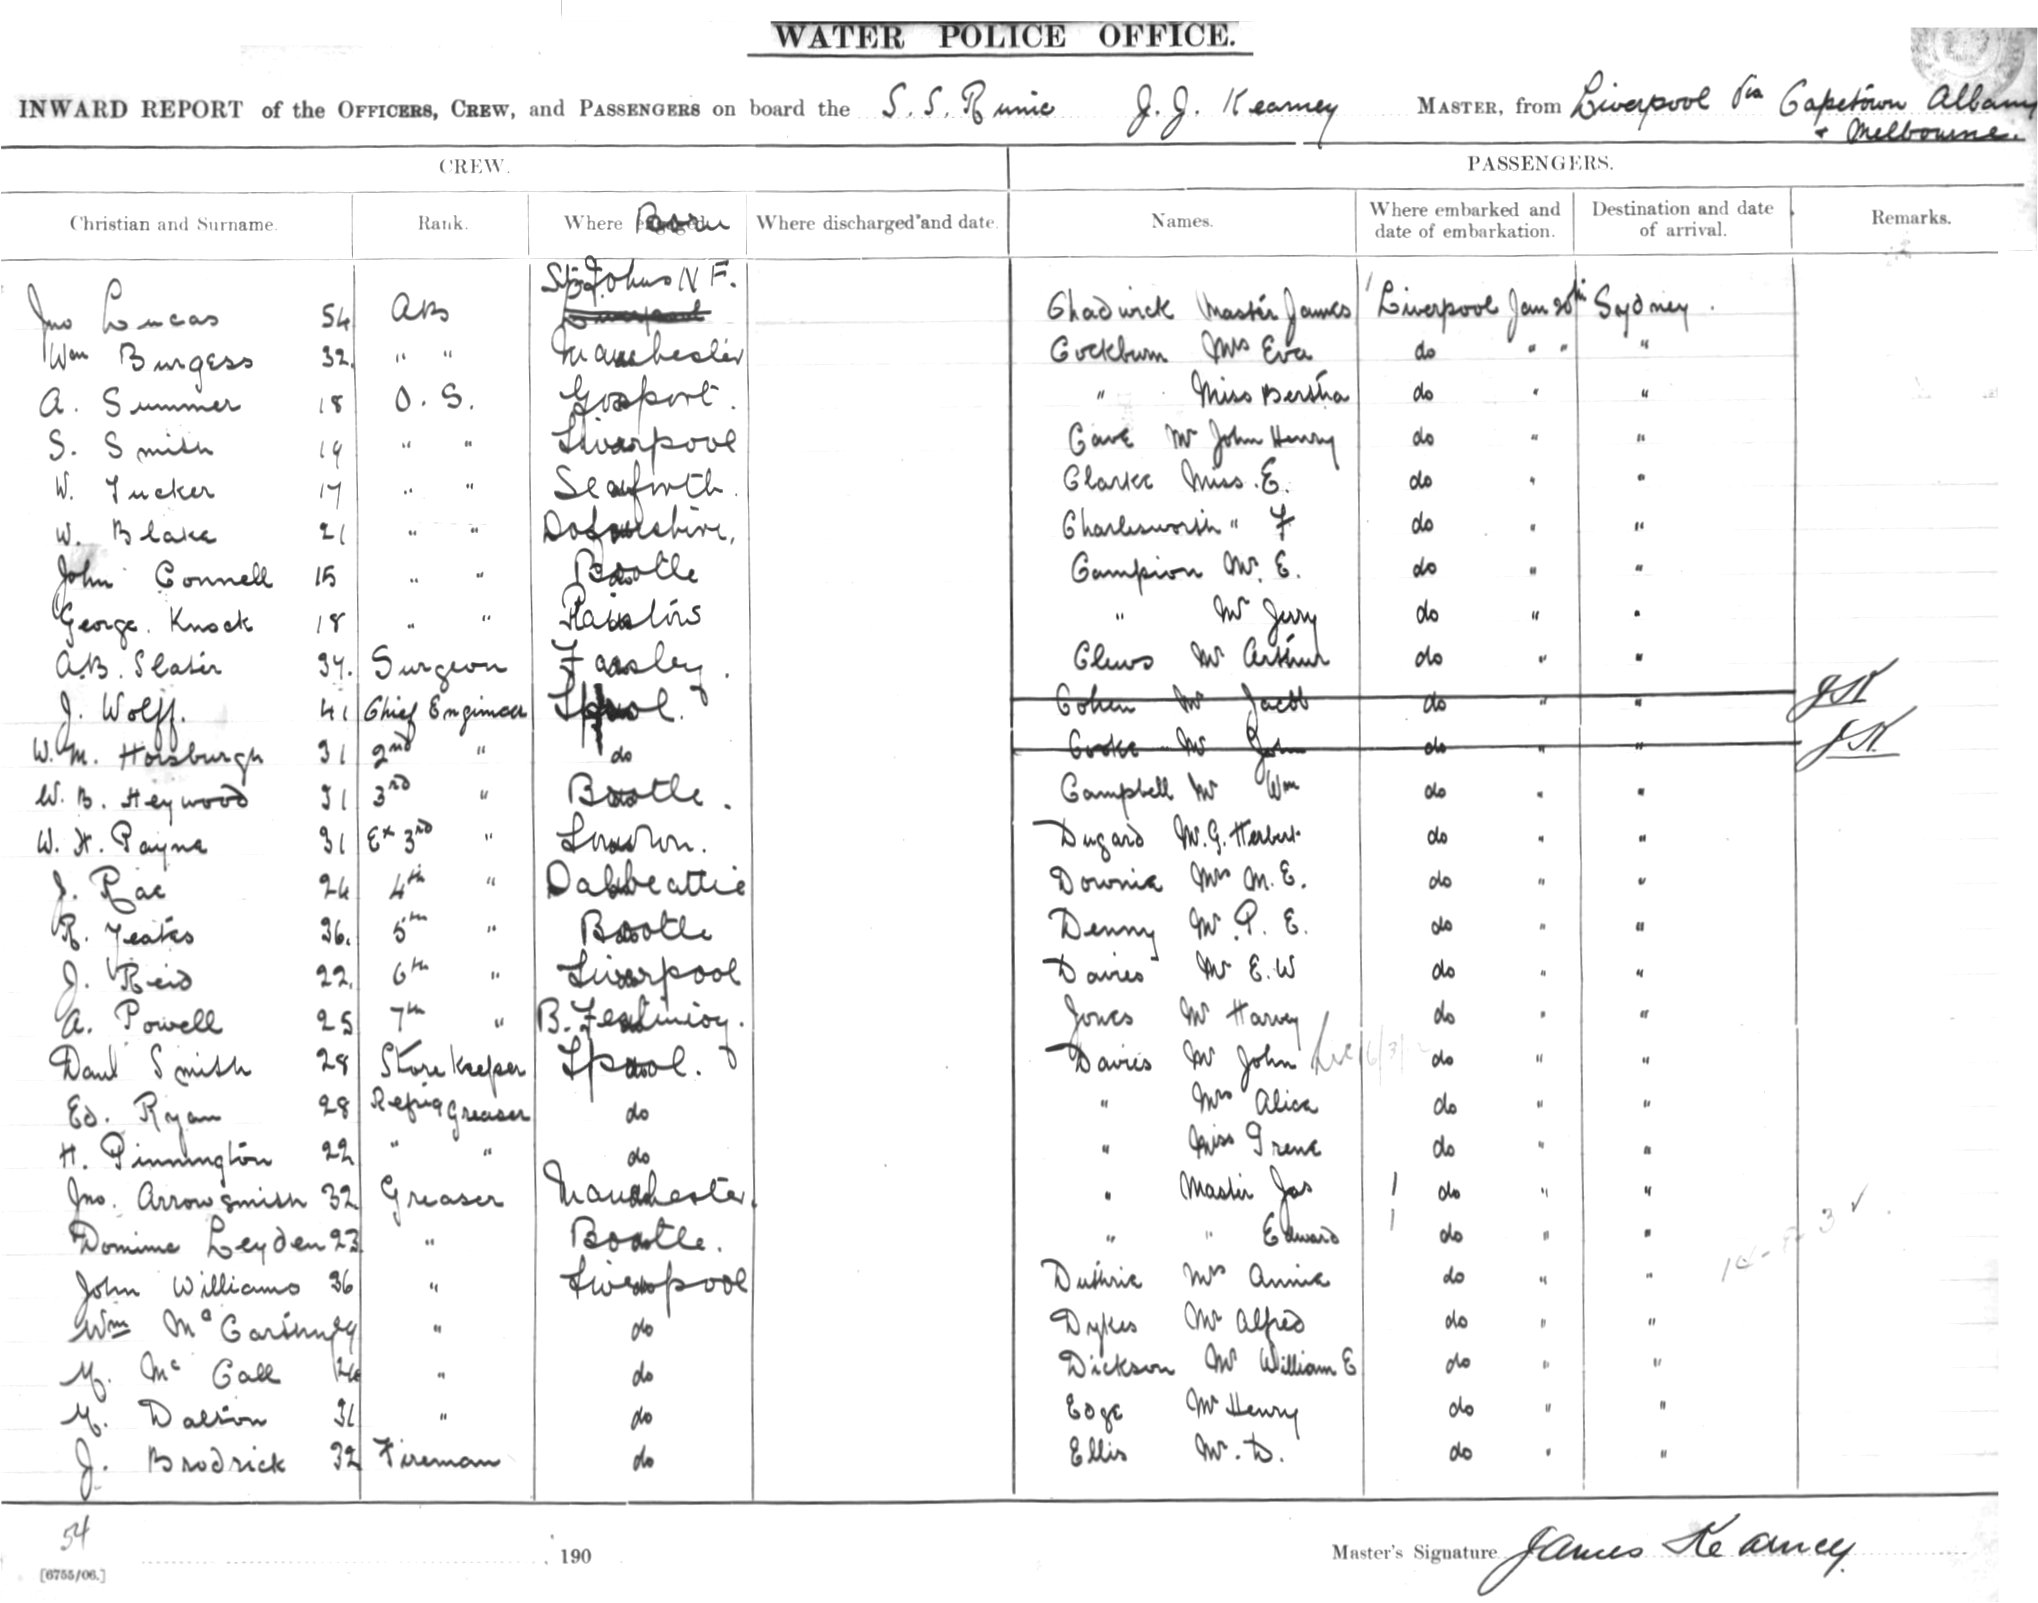 WATER POLICE OFFICE.
INWARD REPORT of the OFFICERS, CREW, and PASSENGERS on board the S. S. Runic J. J. Kearney MASTER, from Liverpool via Capetown Albany
& Melbourne.
CREW. PASSENGERS.
Christian and Surname. Rank. Where Born Where discharged and date. Names. Where embarked and date of embarkation. Destination and date of arrival. Remarks.
St Johns N F.
Jno Lucas 54 AB Chadwick Master James Liverpool Jan 20th Sydney.
Wm Burgess 32. " " Manchester Cockburn Mrs Eva do " " "
A. Summer 18 O. S. Gosport. " Miss Bertha do " "
S. Smith 19 " " Liverpool Cave Mr John Henry do " "
W. Tucker 17 " " Seaforth. Clarke Miss. E. do " "
W. Blake 21 " " Charlesworth " F do " "
John Connell 15 " " Bootle Campion Mr. E. do " "
George. Knock 18 " " " Mr Jerry do " "
A.B. Slater 37. Surgeon Farsley. Clews Mr Arthur do " "
J. Wolff. 41 Chief Engineer Lpool. Cohen Mr Jacob do " " JK
W. M. Horsburgh 31 2nd " do Cooke Mr John do " " JK
W. B. Heywood 31 3rd " Bootle. Campbell Mr Wm do " "
W. H. Payne 31 Ex 3rd " London. Dugard Mr. G. Herbert do " "
J. Rae 24 4th " Dalbeattie Downie Mrs M. E. do " "
R. Yeates 36. 5th " Bootle Denny Mr. P. E. do " "
J. Reid 22. 6th " Liverpool Davies Mr E. W do " "
A. Powell 25 7th " B. Festiniog. Jones Mr Harvey do " "
Danl Smith 28 Store Keeper Lpool. Davies Mr John do " "
Ed. Ryan 28 Refrig Greaser do " Mrs Alice do " "
H. Pinnington 22 " " do " Miss Irene do " "
Jno. Arrowsmith 32 Greaser Manchester. " Master Jas 1 do " "
Dominic Leyden 23 " Bootle. " " Edward 1 do " "
John Williams 36 " Liverpool Duthrie Mrs Annie do " "
Wm McCarthy " do Dykes Mr Alfred do " "
M. McCall " do Dickson Mr William E do " "
M. Dalton 31 " do Edge Mr Henry do " "
J. Brodrick 32 Fireman do Ellis Mr. D. do " "
54
190 Master's Signature James Kearney.
[6755/06.]